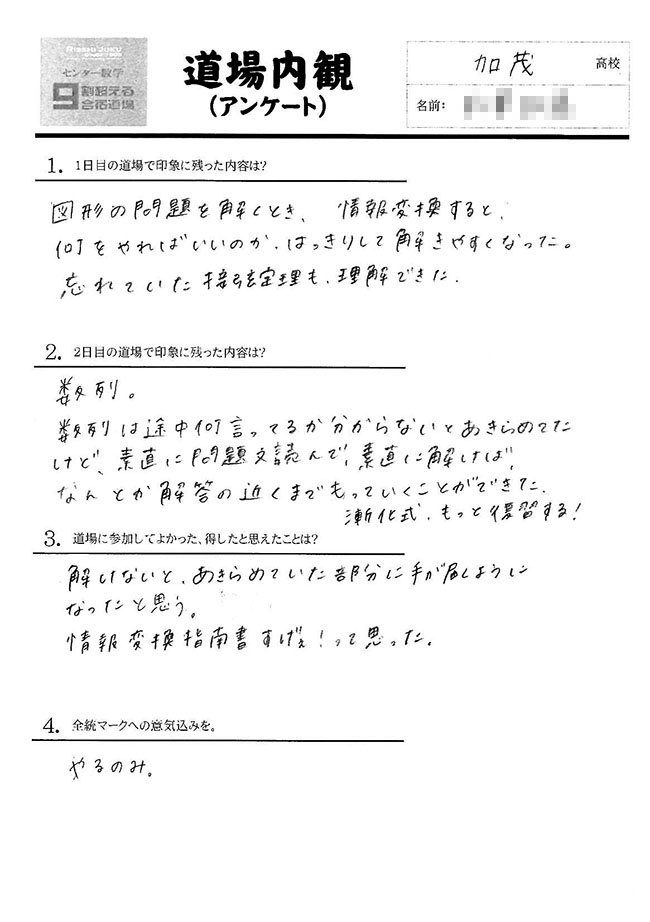 RISSHI JUKU
センター数学
9割超える
合格道場
道場内観
(アンケート)
加茂 高校
名前:
1. 1日目の道場で印象に残った内容は?
図形の問題を解くとき、情報変換すると、
何をやればいいのか、はっきりして解きやすくなった。
忘れていた接弦定理も、理解できた.
2. 2日目の道場で印象に残った内容は?
数列。
数列は途中何言ってるか分からないとあきらめてた
けど、素直に問題文読んで、素直に解けば、
なんとか解答の近くまでもっていくことができた.
漸化式、もっと復習する!
3. 道場に参加してよかった、得したと思えたことは?
解けないと、あきらめていた部分に手が届くように
なったと思う。
情報変換指南書すげぇ!って思った。
4. 全統マークへの意気込みを。
やるのみ。